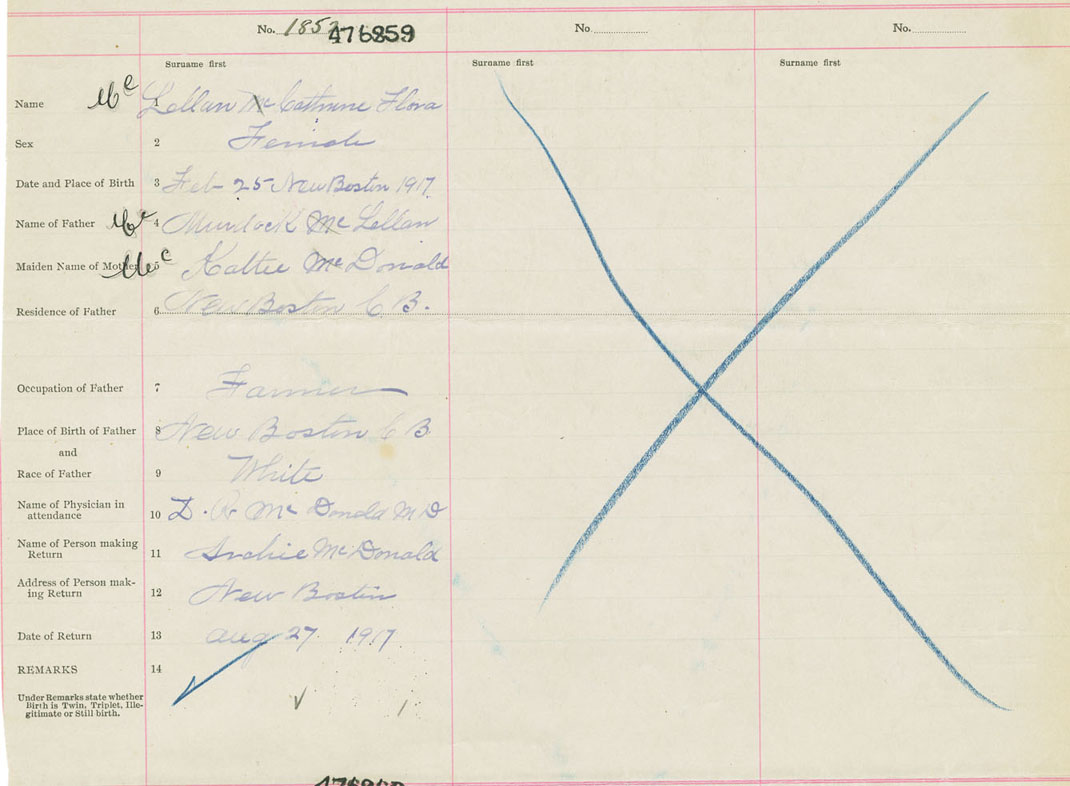 No. 185 476859
No.
No.
Surname first
Surname first
Surname first
Name Mc 1 Lellan Mc Cathrine Flora
Sex 2 Female
Date and Place of Birth 3 Feb 25 New Boston 1917
Name of Father Mc 4 Murdock Mc Lellan
Maiden Name of Mother Mc 5 Kattie Mc Donald
Residence of Father 6 New Boston C B.
Occupation of Father 7 Farmer
Place of Birth of Father 8 New Boston C B
and
Race of Father 9 White
Name of Physician in
attendance 10 D. A Mc Donald M D
Name of Person making
Return 11 Archie McDonald
Address of Person mak-
ing Return 12 New Boston
Date of Return 13 Aug 27 1917
REMARKS 14
Under Remarks state whether
Birth is Twin, Triplet, Ille-
gitimate or Still birth.